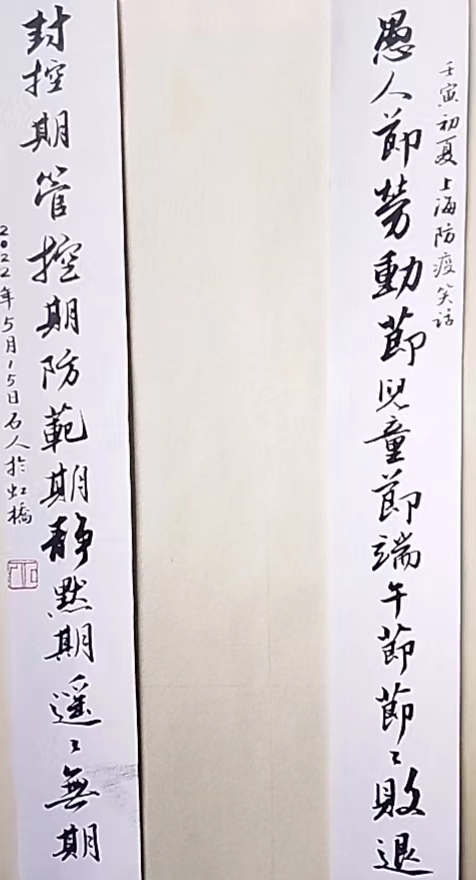 壬寅初夏上海防疫笑话
愚人節勞動節児童節端午節節〻敗退
封控期管控期防範期静默期遥〻無期
2022年5月15日石人於虹橋